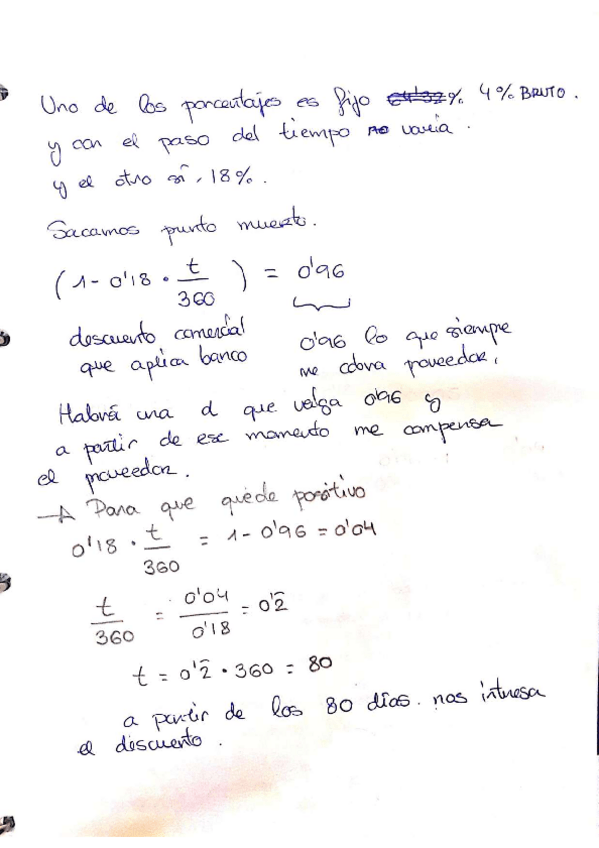 Uno de los porcentajes es fijo % 4% BRUTO.
y con el paso del tiempo no varía.
y el otro sí, 18%.
Sacamos punto muerto.
(1 - 0'18 · t/360) = 0'96
descuento comercial
que aplica banco
0'96 lo que siempre
me cobra proveedor.
Habrá una d que valga 0'96 y
a partir de ese momento me compensa
el proveedor.
→ Para que quede positivo
0'18 · t/360 = 1 - 0'96 = 0'04
t/360 = 0'04/0'18 = 0'2̄
t = 0'2̄ · 360 = 80
a partir de los 80 días. nos interesa
el discuento.